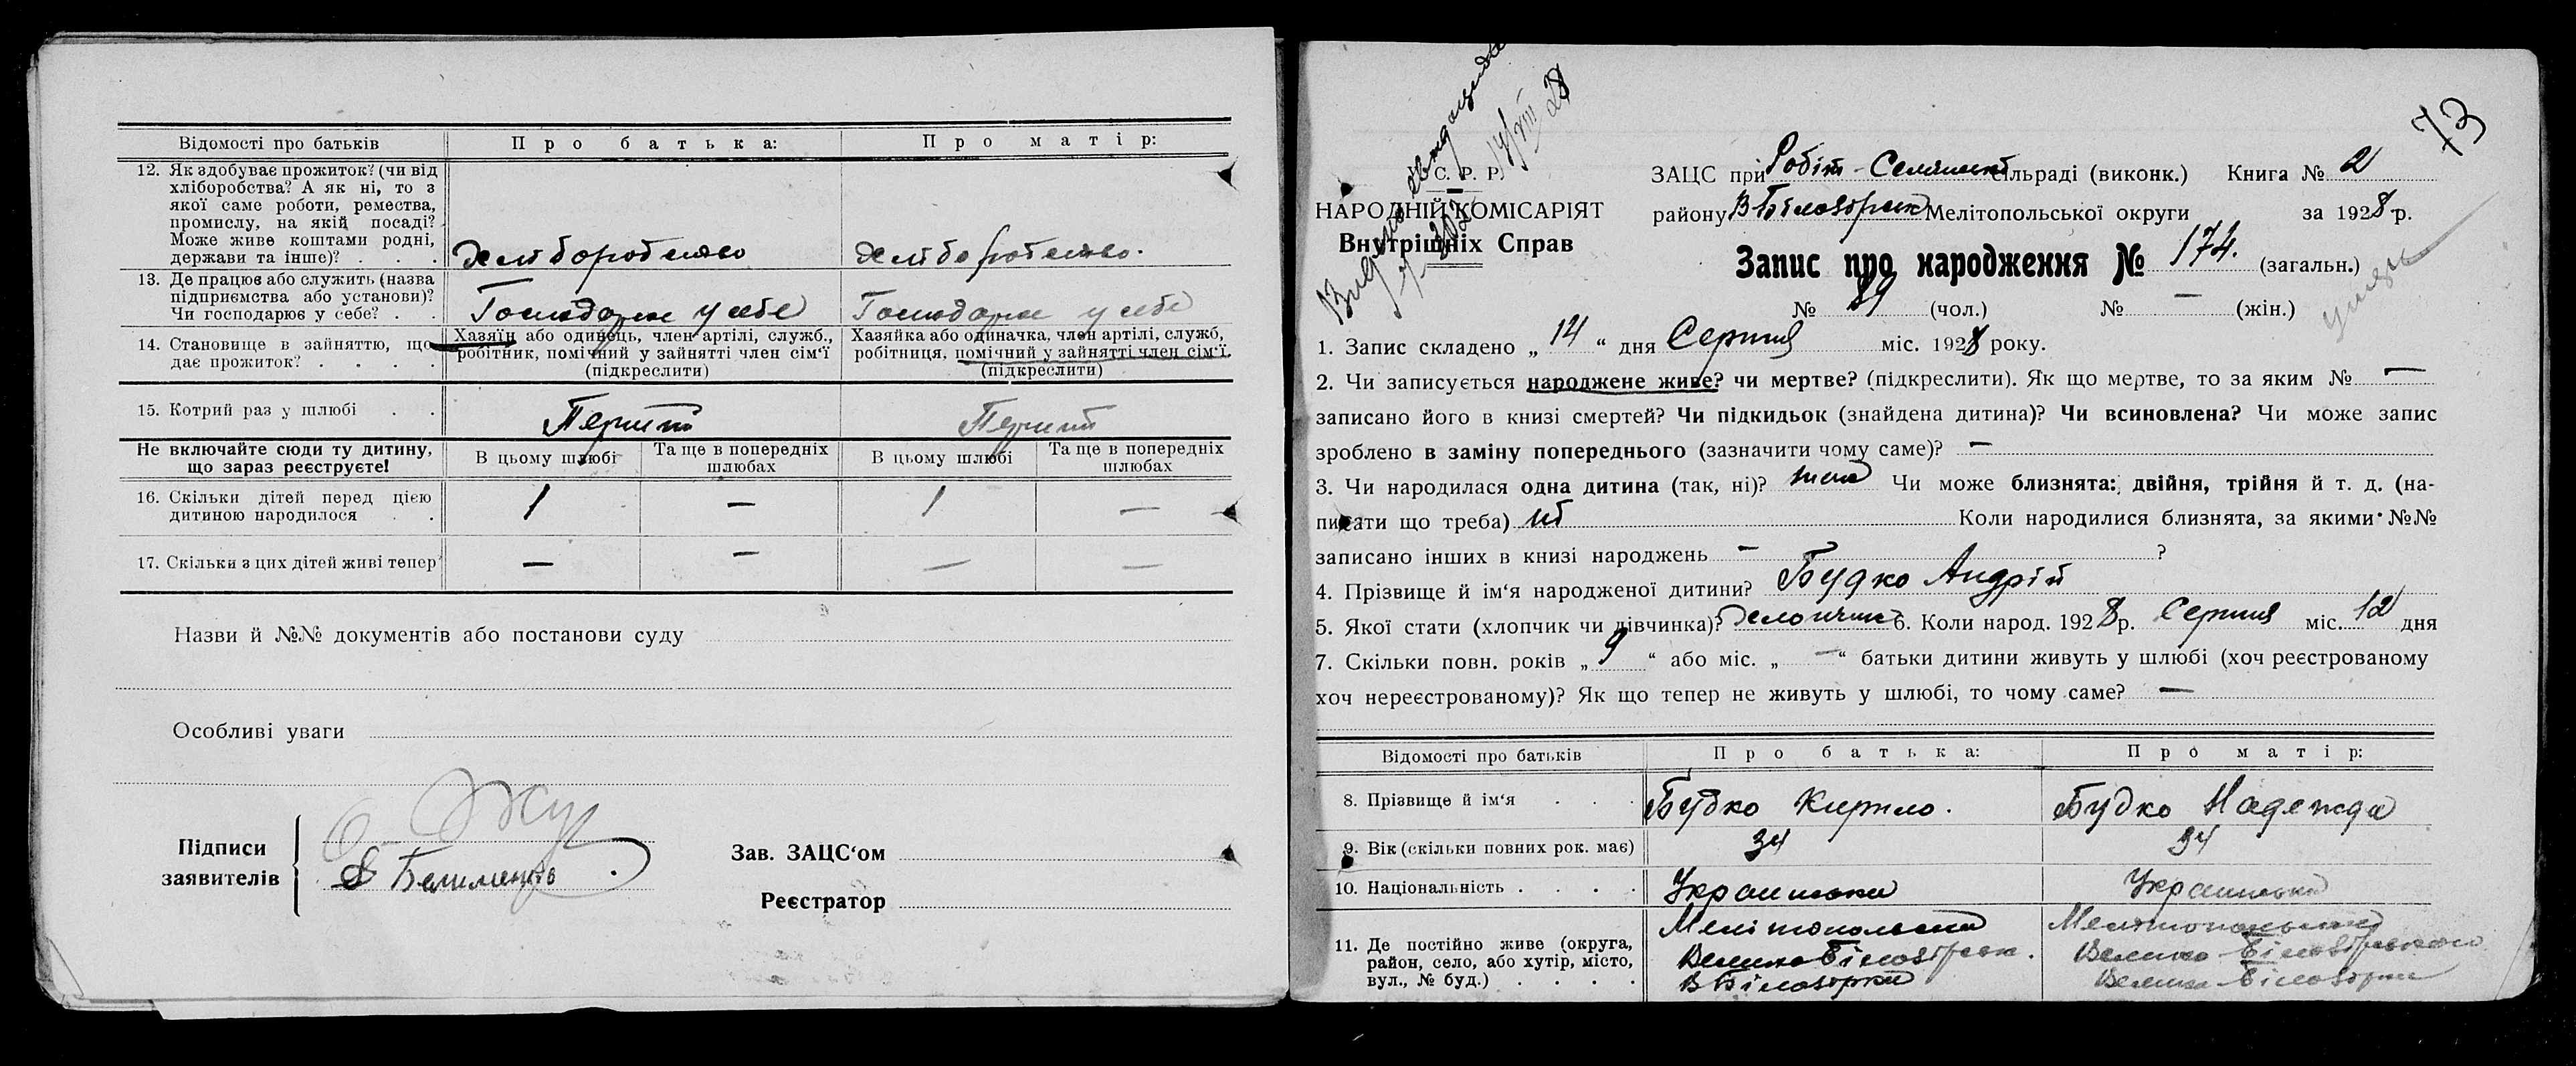 Відомості про батьків
Про батька:
Про матір:
12. Як здобуває прожиток? (чи від
хліборобства? А як ні, то з
якої саме роботи, ремества,
промислу, на якій посаді?
Може живе коштами родні,
держави та інше)? . . .
Хліборобство
Хліборобство.
13. Де працює або служить (назва
підприємства або установи)?
Чи господарює у себе? . .
Господарює у себе
Господарює у себе
14. Становище в зайняттю, що
дає прожиток? . . . .
Хазяїн або одинець, член артілі, служб.,
робітник, помічний у зайнятті член сім'ї
(підкреслити)
Хазяйка або одиначка, член артілі, служб,
робітниця, помічний у зайнятті член сім'ї.
(підкреслити)
15. Котрий раз у шлюбі . .
Перший
Перший
Не включайте сюди ту дитину,
що зараз реєструєте!
В цьому шлюбі
Та ще в попередніх
шлюбах
В цьому шлюбі
Та ще в попередніх
шлюбах
16. Скільки дітей перед цією
дитиною народилося . .
1 — 1 —
17. Скільки з цих дітей живі тепер
— — — —
Назви й №№ документів або постанови суду
Особливі уваги
Підписи
заявителів
Зав. ЗАЦС'ом
Реєстратор
73
С. Р. Р.
НАРОДНІЙ КОМІСАРІЯТ
Внутрішніх Справ
14/VIII 28
ЗАЦС при Робіт-Селянські сільраді (виконк.) Книга № 2
району В Білозірськ Мелітопольської округи за 1928 р.
Запис про народження № 174. (загальн.)
№ 89 (чол.) № — (жін.)
1. Запис складено „ 14 “ дня Серпня міс. 1928 року.
2. Чи записується народжене живе? чи мертве? (підкреслити). Як що мертве, то за яким № —
записано його в книзі смертей? Чи підкидьок (знайдена дитина)? Чи всиновлена? Чи може запис
зроблено в заміну попереднього (зазначити чому саме)? —
3. Чи народилася одна дитина (так, ні)? так Чи може близнята: двійня, трійня й т. д. (на-
писати що треба) ні Коли народилися близнята, за якими №№
записано інших в книзі народжень — ?
4. Прізвище й ім'я народженої дитини? Будко Андрій
5. Якої стати (хлопчик чи дівчинка)? Хлопчик 6. Коли народ. 1928 р. Серпня міс. 12 дня
7. Скільки повн. років „ 9 “ або міс. „ — “ батьки дитини живуть у шлюбі (хоч реєстрованому
хоч нереєстрованому)? Як що тепер не живуть у шлюбі, то чому саме? —
Відомості про батьків
Про батька:
Про матір:
8. Прізвище й ім'я . . .
Будко Кирило.
Будко Надежда
9. Вік (скільки повних рок. має)
34
34
10. Національність . . . .
Українська
Українська
11. Де постійно живе (округа,
район, село, або хутір, місто,
вул., № буд.) . . . .
Мелітопольська
Велико Білозірськ.
В Білозірка
Мелітопольська
Велико Білозірського
Велика Білозірка